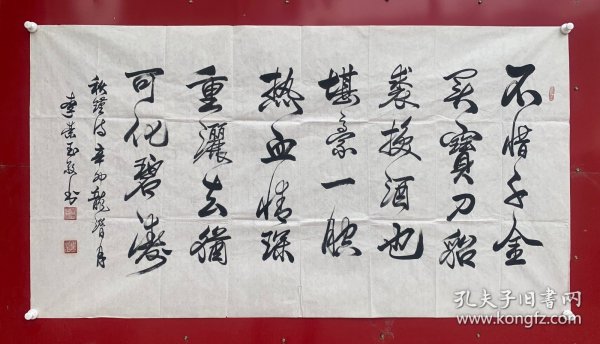 不惜千金
买寶刀貂
裘换酒也
堪豪一腔
热血情珎
重灑去猶
可化碧涛
秋瑾诗辛卯龍潛月
孔夫子旧书网
www.kongfz.com